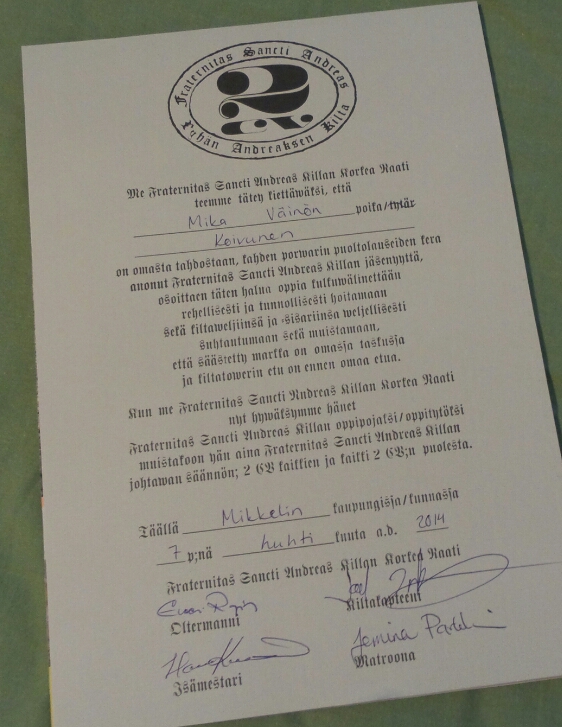 Fraternitas Sancti Andreas
Pyhän Andreaksen Kilta
Me Fraternitas Sancti Andreas Killan Korkea Raati
teemme tätey tiettäwäksi, että
Mika Väinön poika/tytär
Koivunen
on omasta tahdostaan, kahden porwarin puoltolauseiden kera
anonut Fraternitas Sancti Andreas Killan jäsenyyttä,
osoittaen täten halua oppia kulkuwälinettään
rehellisesti ja tunnollisesti hoitamaan
sekä kiltaweljiinsä ja -sisariinsa weljellisesti
suhtautumaan sekä muistamaan,
että säästetty markka on omasja taskusja
ja kiltatowerin etu on ennen omaa etua.
Kun me Fraternitas Sancti Andreas Killan Korkea Raati
nyt hywäksymme hänet
Fraternitas Sancti Andreas Killan oppipojaksi/oppitytöksi
muistakoon hän aina Fraternitas Sancti Andreas Killan
johtawan säännön; 2 CV kaikkien ja kaikki 2 CV:n puolesta.
Täällä Mikkelin kaupungisja/kunnasja
7 p:nä huhti kuuta a.d. 2014
Fraternitas Sancti Andreas Killan Korkea Raati
Oltermanni
Kiltakapteeni
Jemina
Isämestari
Matroona